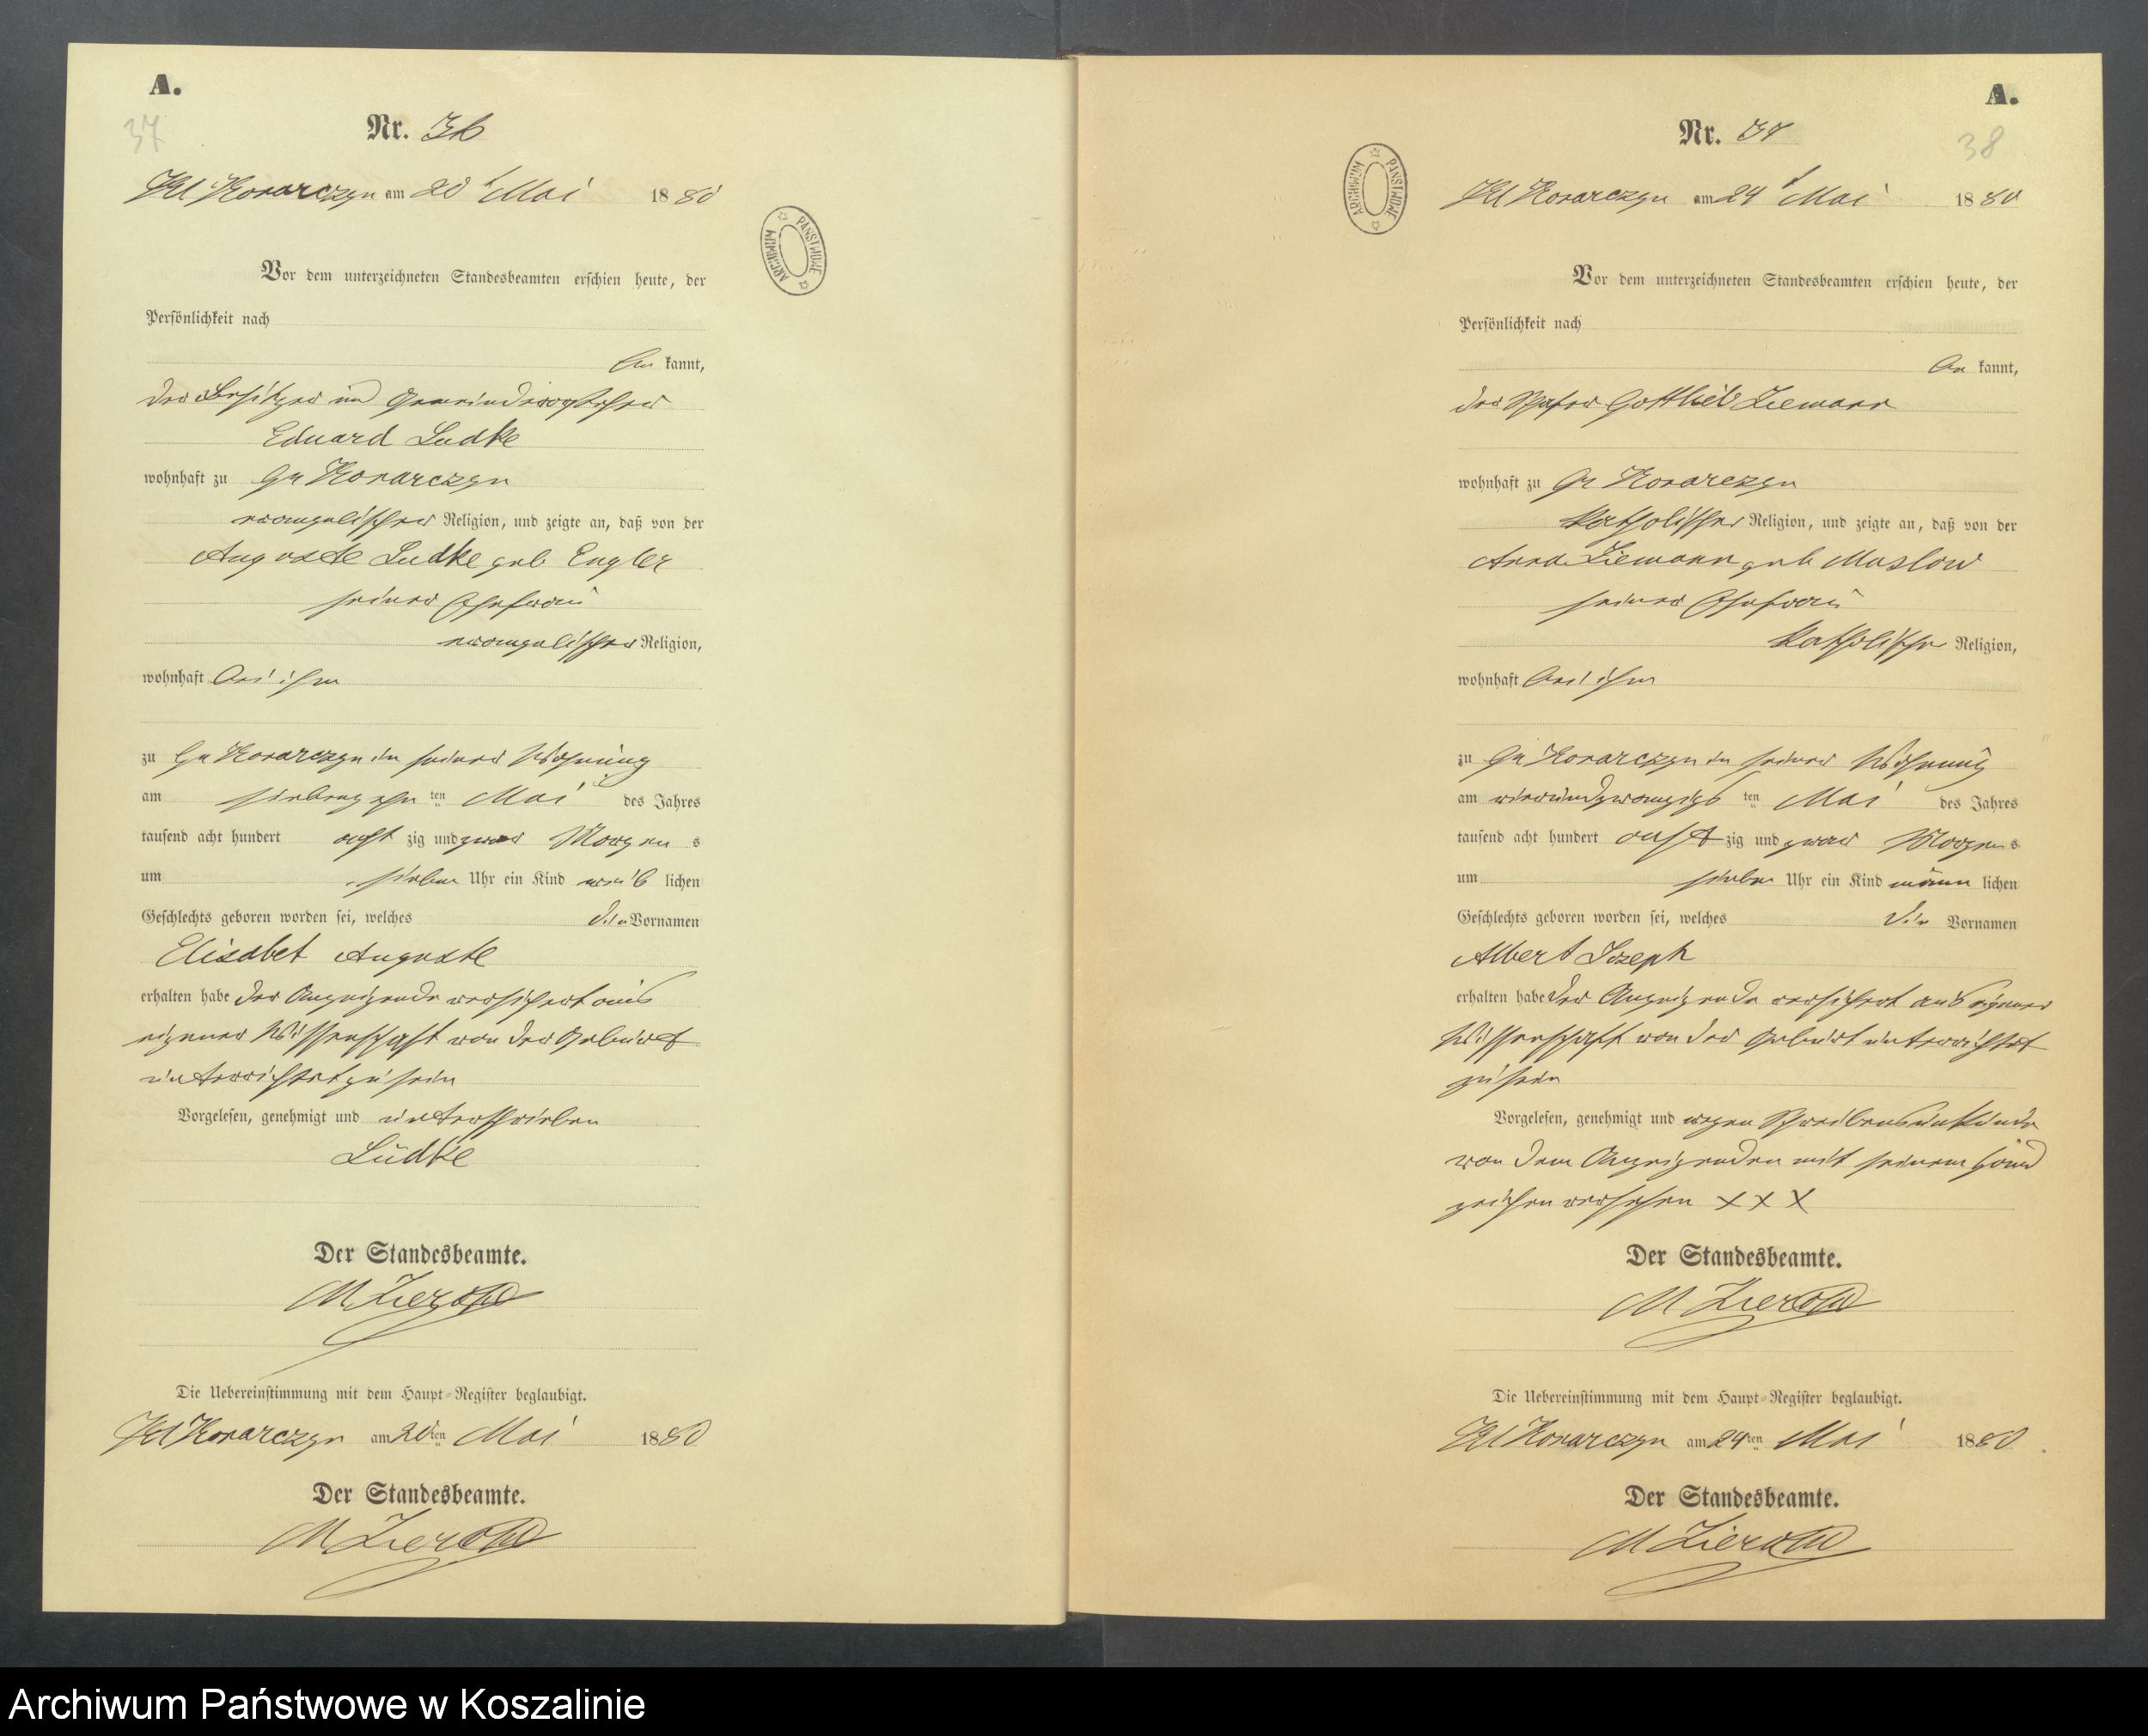 A.
37
Nr. 36
Kl Konarczyn am 20 t Mai 1880
Vor dem unterzeichneten Standesbeamten erschien heute, der
Persönlichkeit nach
be kannt,
der Besitzer und Gemeindevorsteher
Eduard Ludke
wohnhaft zu Gr Konarczyn
evangelischer Religion, und zeigte an, daß von der
Auguste Ludke geb Engler
seiner Ehefrau
evangelischer Religion,
wohnhaft bei ihm
zu Gr Konarczyn in seiner Wohnung
am siebenzehn ten Mai des Jahres
tausend acht hundert acht zig und zwar Morgen s
um sieben Uhr ein Kind weib lichen
Geschlechts geboren worden sei, welches die Vornamen
Elisabet Auguste
erhalten habe der Anzeigende versichert aus
eigener Wissenschaft von der Geburt
unterrichtet zu sein
Vorgelesen, genehmigt und unterschrieben
Lüdke
Der Standesbeamte.
M Zierold
Die Uebereinstimmung mit dem Haupt-Register beglaubigt.
Kl Konarczyn am 20ten Mai 1880
Der Standesbeamte.
M Zierold
ARCHIWUM PAŃSTWOWE
A.
38
Nr. 37
Kl Konarczyn am 24 t Mai 1880
Vor dem unterzeichneten Standesbeamten erschien heute, der
Persönlichkeit nach
be kannt,
der Schäfer Gottlieb Ziemann
wohnhaft zu Gr Konarczyn
katholischer Religion, und zeigte an, daß von der
Anna Ziemann geb Maslow
seiner Ehefrau
katholischer Religion,
wohnhaft bei ihm
zu Gr Konarczyn in seiner Wohnung
am vierundzwanzigs ten Mai des Jahres
tausend acht hundert acht zig und zwar Morgen s
um sieben Uhr ein Kind männ lichen
Geschlechts geboren worden sei, welches die Vornamen
Albert Joseph
erhalten habe der Anzeigende versichert aus eigener
Wissenschaft von der Geburt unterrichtet
zu sein
Vorgelesen, genehmigt und wegen Schreibensunkunde
von dem Anzeigenden mit seinem Hand
zeichen versehen X X X
Der Standesbeamte.
M Zierold
Die Uebereinstimmung mit dem Haupt-Register beglaubigt.
Kl Konarczyn am 24ten Mai 1880
Der Standesbeamte.
M Zierold
ARCHIWUM PAŃSTWOWE
Archiwum Państwowe w Koszalinie